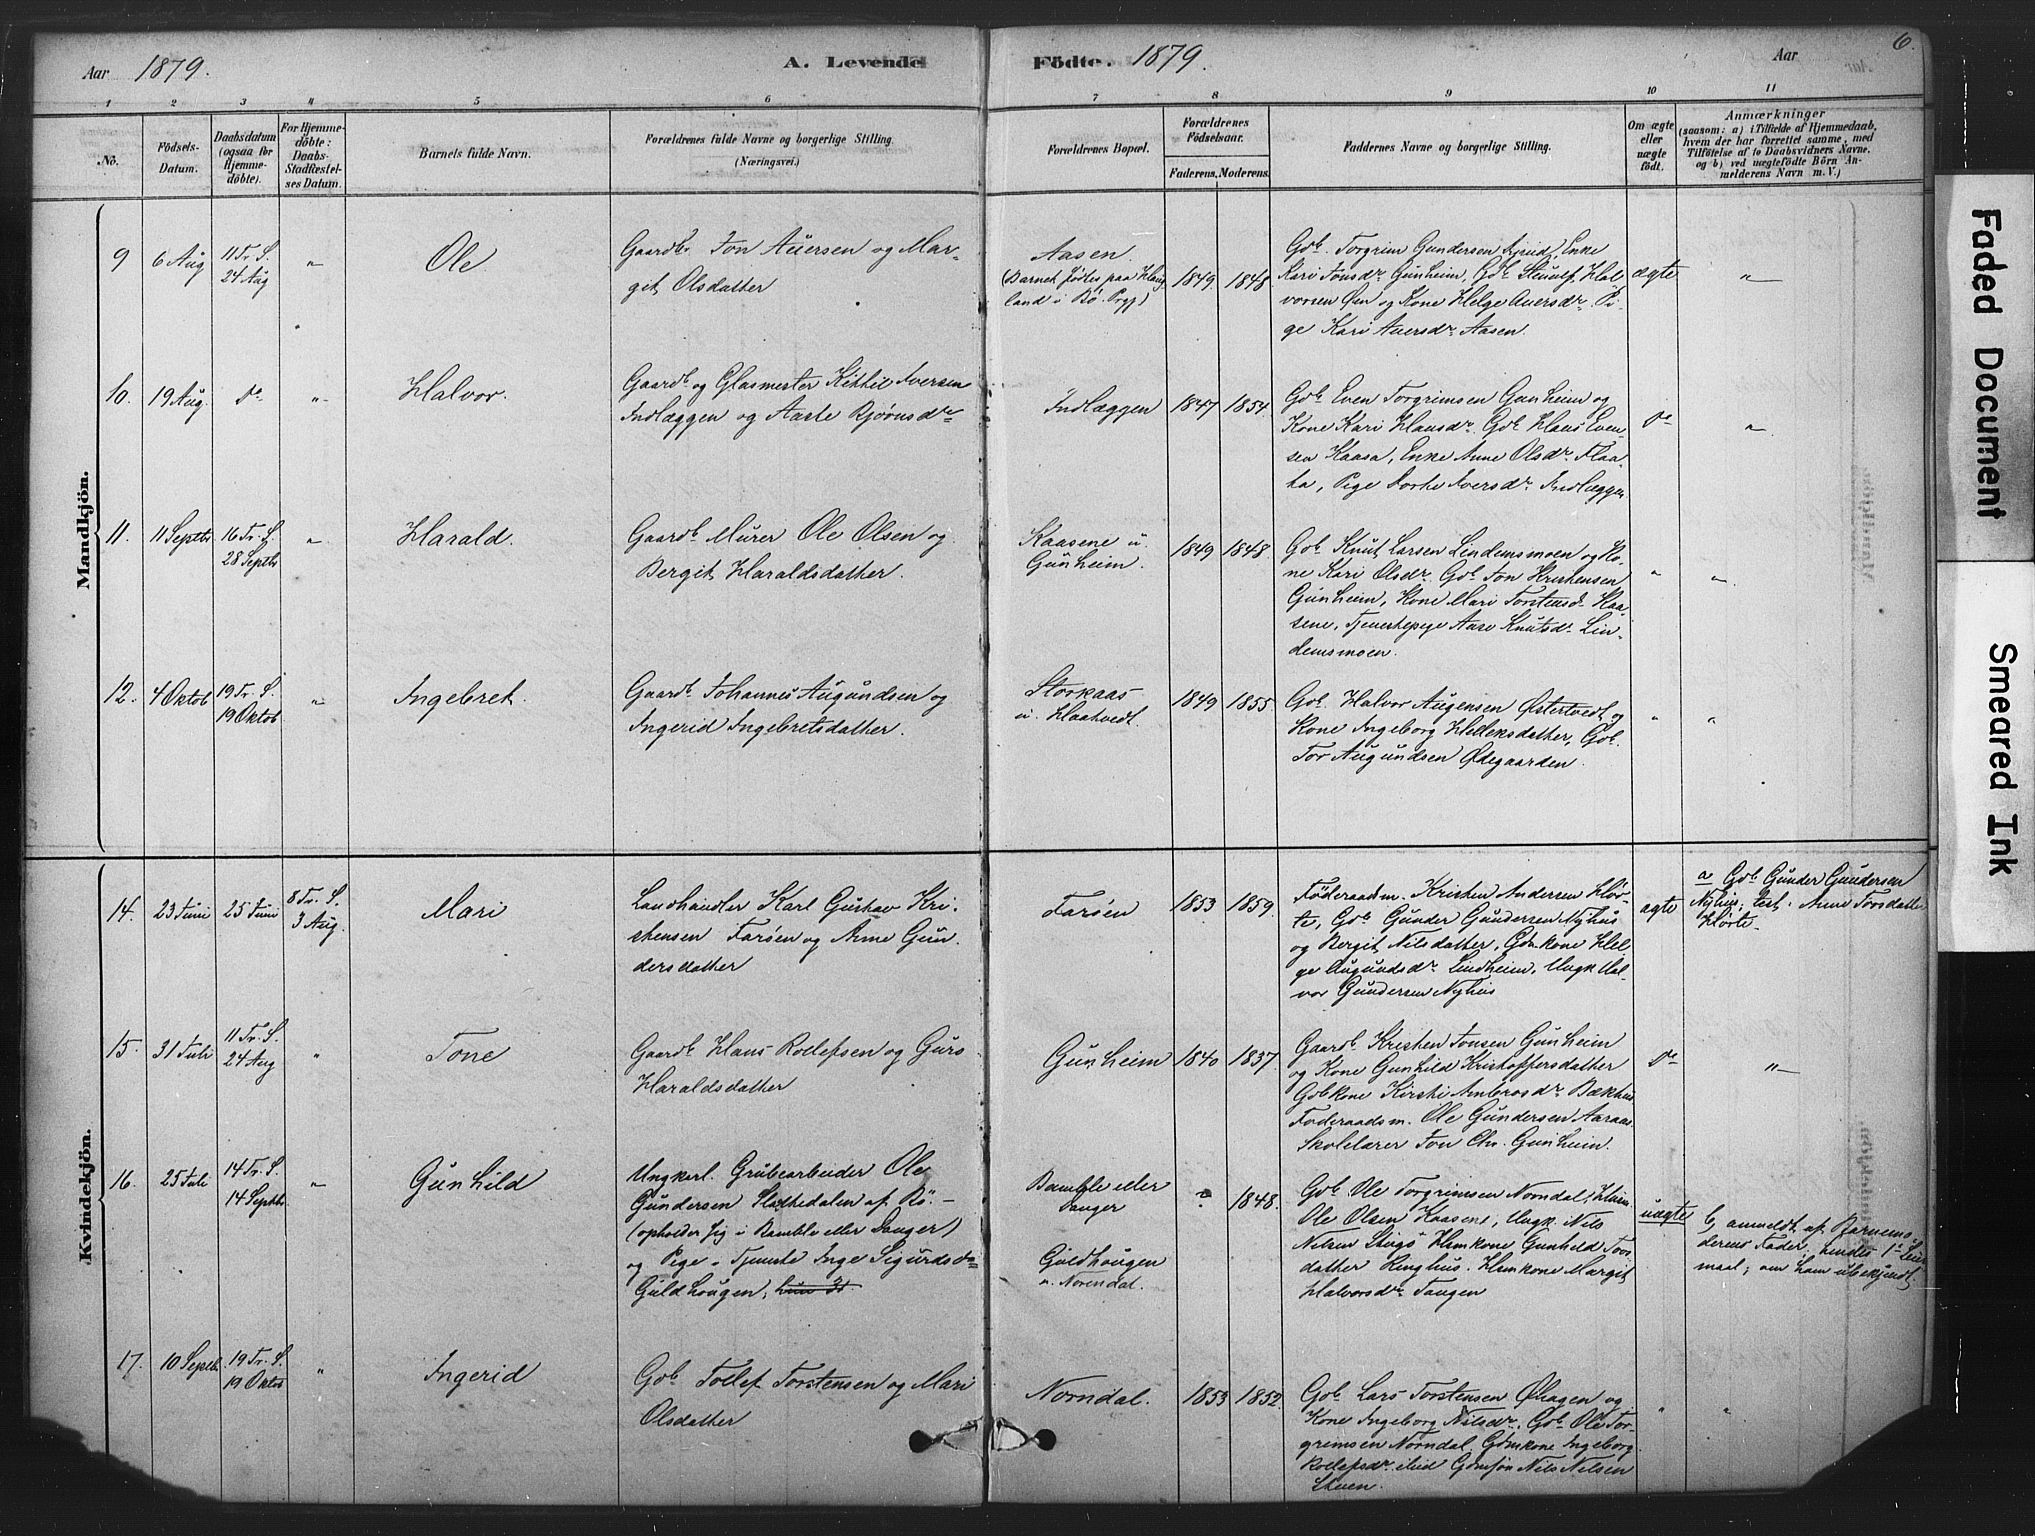 Aar 1879.
A. Levende
Födte. 1879.
Aar
6.
1 2 3 4 5 6 7 8 9 10 11
No.
Födsels-
Datum.
Daabsdatum
(ogsaa for
Hjemme-
döbte).
For Hjemme-
döbte:
Daabs-
Stadfæstel-
ses Datum.
Barnets fulde Navn.
Forældrenes fulde Navne og borgerlige Stilling.
(Næringsvei.)
Forældrenes Bopæl.
Forældrenes
Födselsaar.
Faderens. Moderens.
Faddernes Navne og borgerlige Stilling.
Om ægte
eller
uægte
födt.
Anmærkninger
(saasom: a) i Tilfælde af Hjemmedaab,
hvem der har forrettet samme, med
Tilföielse af to Daabsvidners Navne,
og b) ved uægtefödte Börn An-
melderens Navn m. V.)
Mandkjön.
9
6 Aug
11 Tr. S.
24 Aug
"
Ole.
Gaardbr Jon Auersen og Mar-
git Olsdatter
Aasen.
(Barnet födte paa
land i Bö Prgj)
1849. 1848
Gdb. Torgrim Gundersen Enke
Kari Jonsdr Gunheim, Gdb. Hal-
vorsen og Kone Helge Auersdr Pi-
ge Kari Auersdr Aasen.
ægte
"
10.
19 Aug.
Do
"
Halvor.
Gaardb. og Glasmester Kittil Iversen
Indlæggen og Aaste Bjørnsdr
Indlæggen
1847 1854.
Gdb. Even Torgrimsen Gunheim og
Kone Kari Hansdr. Gdb. Hans Even-
sen Kaasa, Enke Anne Olsdr Flaa-
ta, Pige Dorthe Iversdr Indlæggen
Do
"
11.
11 Septbr
16 Tr. S.
28 Septbr
"
Harald.
Gaardb. Murer Ole Olsen og
Bergit Haraldsdatter.
Kaasene u.
Gunheim.
1849 1848.
Gdb. Knut Larsen Lindemsmoen og Ko-
ne Kari Olsdr. Gdb. Jon Kristensen
Gunheim, Kone Mari Torstensdr Kaa-
sene, Tjenestepige Aase Knutsdr Lin-
demsmoen.
"
"
12.
4 Oktob
19 Tr. S.
19 Oktob
"
Ingebret.
Gaardb. Johannes Augundsen og
Ingerid Ingebretsdatter.
Storkaas
u. Haatvedt.
1849 1855.
Gdb. Halvor Augensen Østertvedt og
Kone Ingeborg Helleksdatter, Gdb.
Tor Augundsen Ødegaarden.
"
"
Kvindekjön.
14.
23 Juni
25 Juni
8 Tr. S.
3 Aug.
Mari
Landhandler Karl Gustav Kri-
stensen Farøen og Anne Gun-
dersdatter
Farøen
1853 1859.
Föderaadsm. Kristen Andersen Hör-
te, Gdb. Gunder Gundersen Nyhus
og Bergit Nilsdatter, Gdmkone Hel-
ge Augundsdr Lindheim, Ungk Hal-
vor Gundersen Nyhus
ægte
a Gdb. Gunder Gundersen
Nyhus, test. Anne Torsdatter
Hörte.
15.
31 Juli
11 Tr. S.
24 Aug
"
Tone
Gaardb. Hans Rollefsen og Gurs
Haraldsdatter
Gunheim
1840 1837.
Gaardb. Kristen Jonsen Gunheim
og Kone Gunhild Kristoffersdatter
Gdbkone Kirsti Ambrosdr Bækhus
Föderaadsm. Ole Gundersen Aaraas.
Skolelærer Jon Chr. Gunheim.
Do
"
16.
25 Juli
14 Tr. S.
14 Septbr
"
Gunhild
Ungkarl. Grubearbeider Ole
Gundersen Slattedalen af Bö. -
(opholder sig i Bamble eller Sanger)
og Pige - Tjenende Inge Sigurdsdr
Guldhougen,
Bamble eller
Sanger
Guldhougen
u. Norendal.
? 1848.
Gdb. Ole Torgrimsen Norndal, Husm.
Ole Olsen Kaasene, Ungk. Nils
Nilsen Hsmkone Gunhild Tors-
datter Ringhus. Hsmkone Margit
Halvorsdr Tangen
uægte
b, anmeldt af Barnemo-
derens Fader, hendes 1ste Leier-
maal; om ham ubekjendt.
17.
10 Septb.
19 Tr. S.
19 Oktob
"
Ingerid
Gdb. Tollef Torstensen og Mari
Olsdatter
Norndal.
1853 1852.
Gdb. Lars Torstensen Øhagen og
Kone Ingeborg Nilsdr. Gdb. Ole Tor-
gremsen Norndal, Gdmkone Ingeborg
Rollefsdr Gdmsøn Nils Nilsen
"
"
Faded Document
Smeared Ink